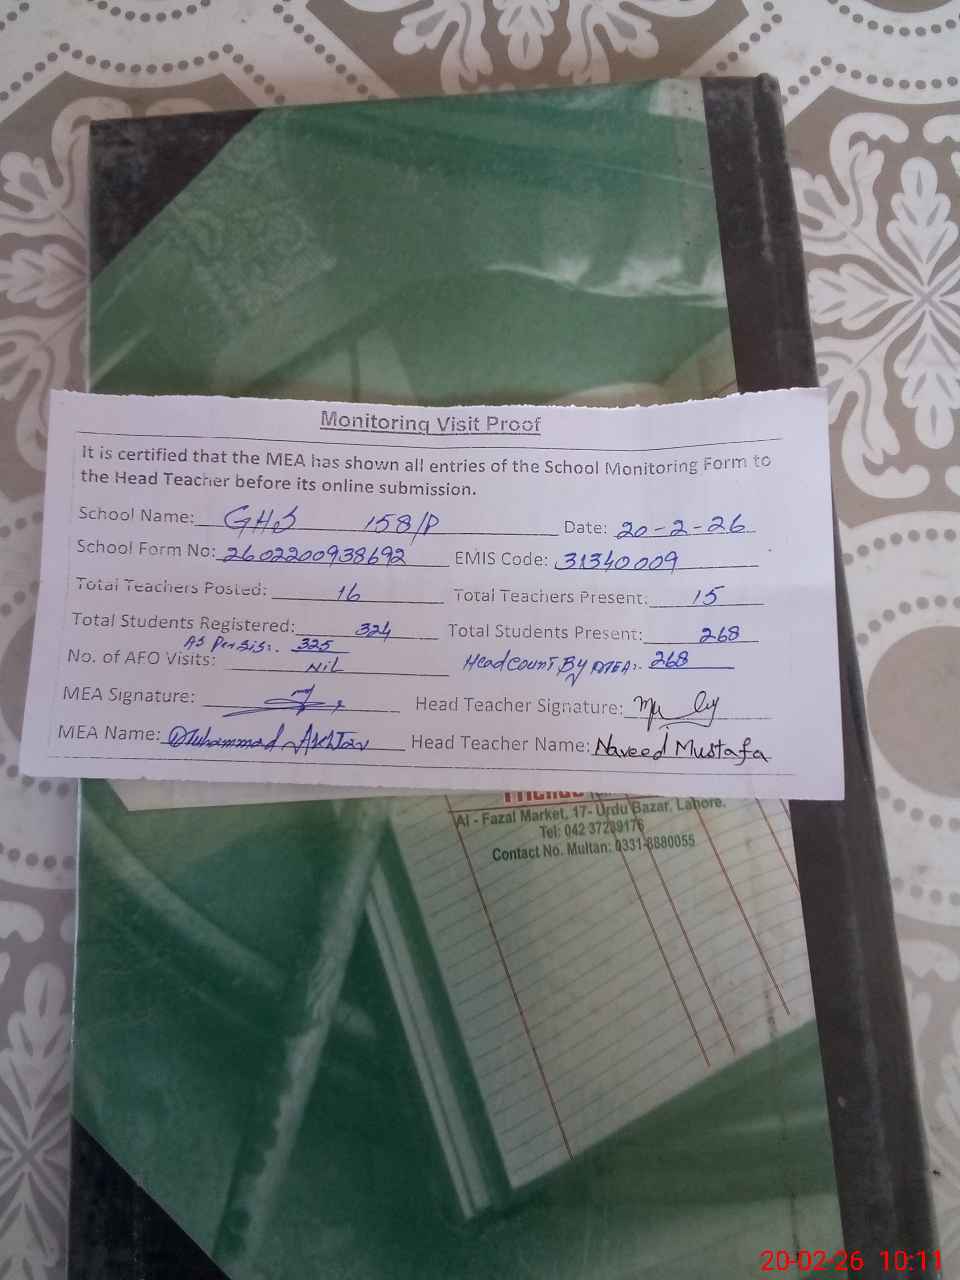 Monitoring Visit Proof
It is certified that the MEA has shown all entries of the School Monitoring Form to
the Head Teacher before its online submission.
School Name: GHS 158/P Date: 20-2-26
School Form No: 2602200938692 EMIS Code: 31340009
Total Teachers Posted: 16 Total Teachers Present: 15
Total Students Registered: 324 Total Students Present: 268
As Per Sis:. 325
No. of AFO Visits: Nil Headcount By MEA:. 268
MEA Signature: Head Teacher Signature:
MEA Name: Muhammad Akhtar Head Teacher Name: Naveed Mustafa
Al - Fazal Market, 17- Urdu Bazar, Lahore.
Tel: 042 37239176
Contact No. Multan: 0331-8880055
20-02-26 10:11